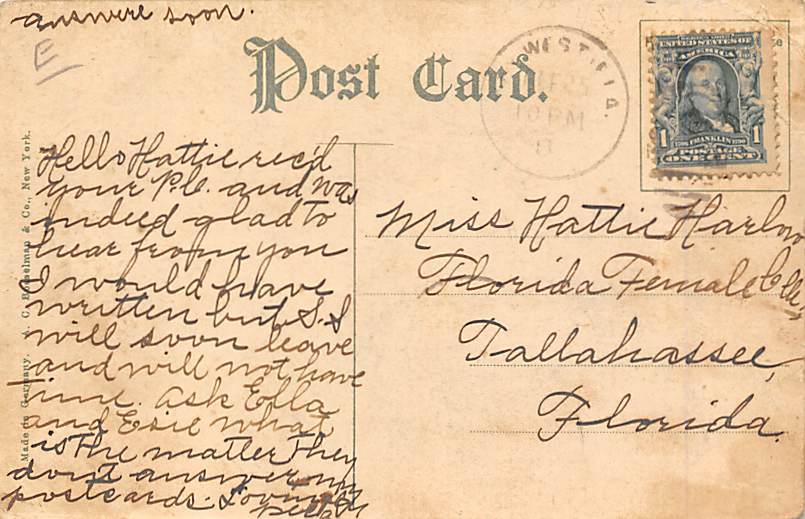 answere soon.
E
Post Card.
WEST FLA.
10 PM
SERIES 1902
UNITED STATES OF
AMERICA
1 FRANKLIN 1
POSTAGE
ONE CENT
Hello Hattie rec'd
your P.C. and was
indeed glad to
hear from you
I would have
written but S.S
will soon leave
and will not have
time. Ask Ella
and Esie what
is the matter they
don't answer my
postcards. Loving
Miss Hattie Harlow
Florida Female Colleg
Tallahassee,
Florida.
Made in Germany. A. C. Bosselman & Co., New York.